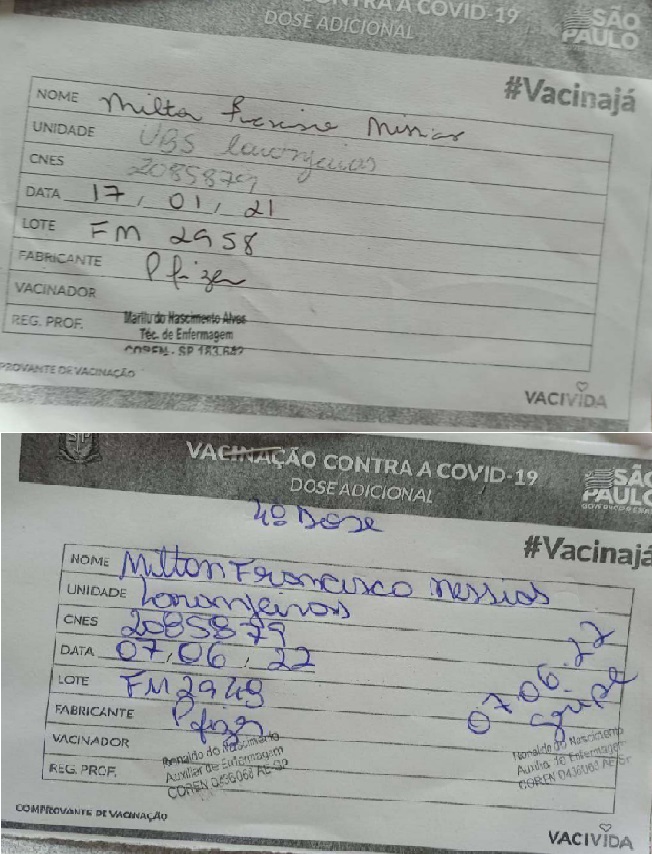 CONTRA A COVID-19
DOSE ADICIONAL
SÃO
PAULO
#Vacinajá
NOME Milton
UNIDADE UBS Laranjeiras
CNES 2085879
DATA 17, 01, 21
LOTE FM 2958
FABRICANTE Pfizer
VACINADOR
REG. PROF. Marilu do Nascimento Alves
Téc. de Enfermagem
COREN - SP
PROVANTE DE VACINAÇÃO
VACIVIDA
VACINAÇÃO CONTRA A COVID-19
DOSE ADICIONAL
SÃO
PAULO
4º Dose
#Vacinajá
NOME Milton Francisco Messias
UNIDADE Laranjeiras
CNES 2085879
DATA 07, 06, 22
LOTE FM2949
FABRICANTE Pfizer
VACINADOR Ronaldo do Nascimento
Auxiliar de Enfermagem
REG. PROF. COREN
07.06.22
Ronaldo do Nascimento
COREN
COMPROVANTE DE VACINAÇÃO
VACIVIDA